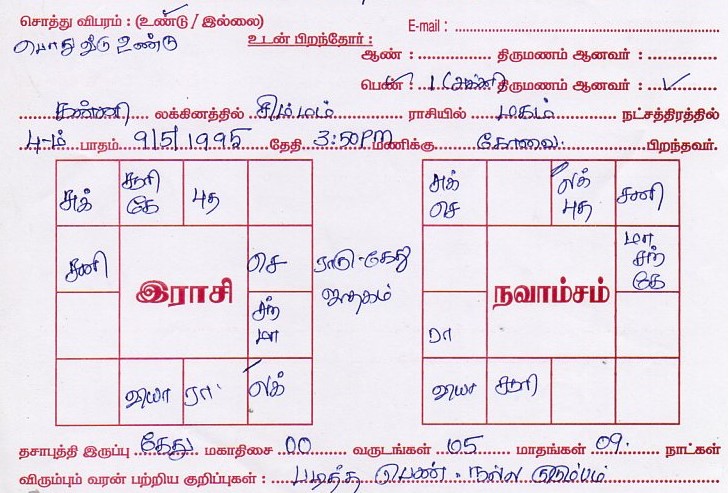 சொத்து விபரம் : (உண்டு / இல்லை)
பொது வீடு உண்டு
E-mail :
உடன் பிறந்தோர் :
ஆண் : திருமணம் ஆனவர் :
பெண் : 1 திருமணம் ஆனவர் : ✓
கன்னி லக்கினத்தில் சிம்மம் ராசியில் மகம் நட்சத்திரத்தில்
4-ம் பாதம் 9/5/1995 தேதி 3:50PM மணிக்கு கோவை பிறந்தவர்.
சுக் சூரி கே புத
சனி செ
இராசி
சந் மா
வியா ரா லக்
ராகு-கேது
ஜாதகம்
சுக் செ லக் புத சனி
மா சந் கே
நவாம்சம்
ரா
வியா சூரி
தசாபுத்தி இருப்பு கேது மகாதிசை 00 வருடங்கள் 05 மாதங்கள் 09 நாட்கள்
விரும்பும் வரன் பற்றிய குறிப்புகள் : படித்த பெண். நல்ல குடும்பம்